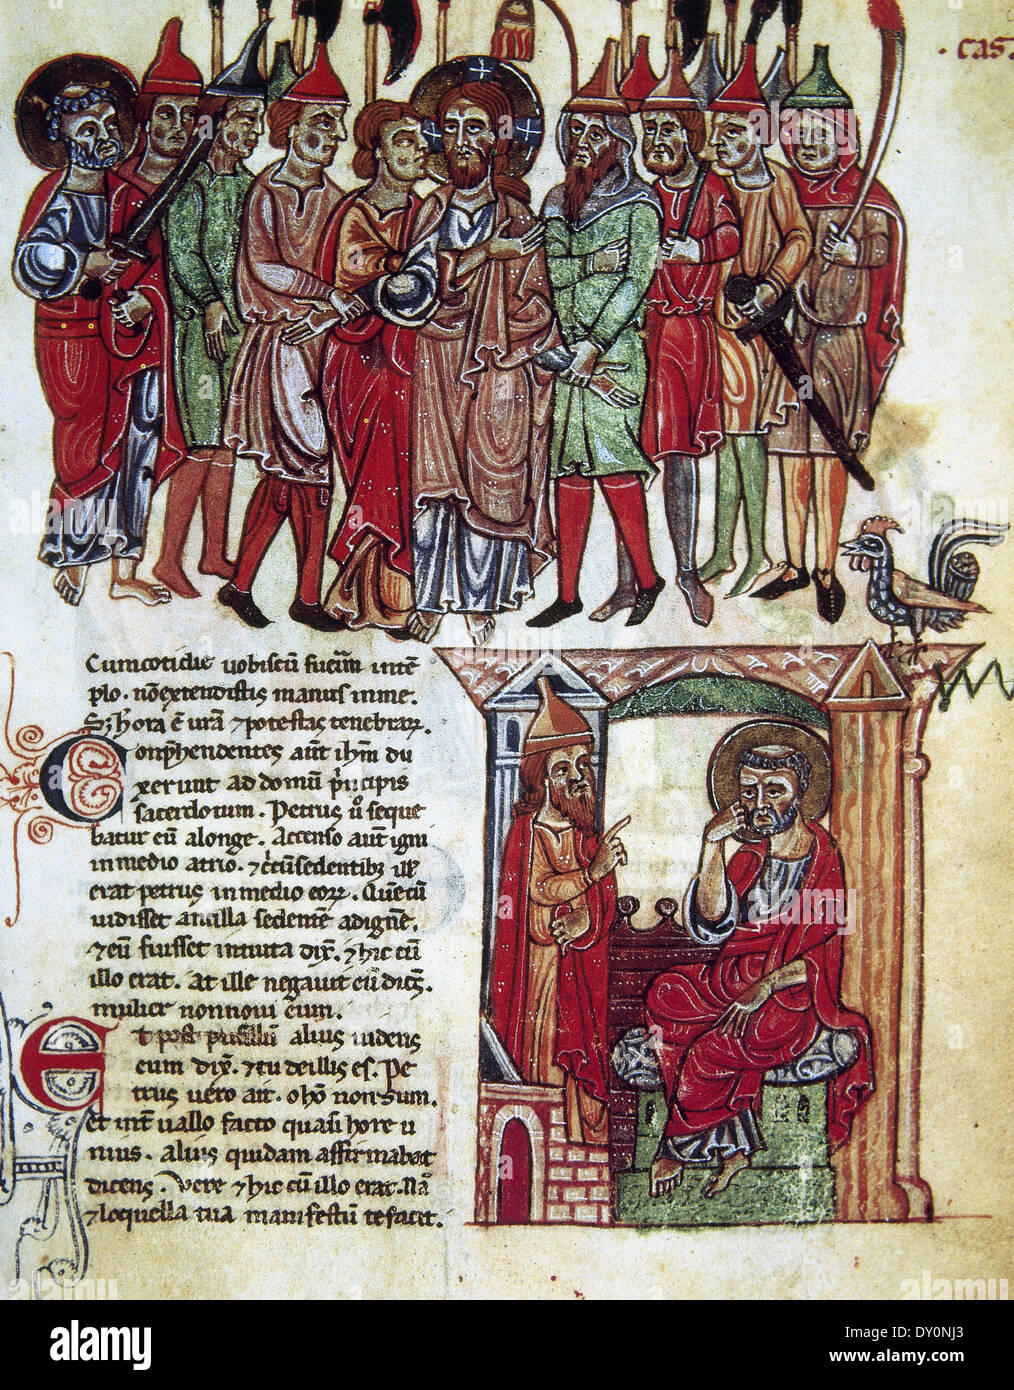 · cas.
Cum cotidie vobiscū fuerim in tē
plo. nō extendistis manus in me.
S; hˀora ē urā ⁊ potestas tenebrar̄.
Conp̄hendentes aūt ihm̄ du
xerunt ad domū p̄ncipis
sacerdotum. Petrus u̾o seque
batur eū alonge. Accenso aūt igni
in medio atrio. ⁊ c̄cūsedentib; ill̄
erat petrus in medio eor̄. Quē cū
vidisset ancilla sedentē ad ignē.
⁊ eū fuisset intuita dix̄. ⁊ hic cū
illo erat. At ille negavit eū dic̄s.
mulier non novi eum.
Et post pusillū alius videns
eum dix̄. ⁊ tu de illis es. Pe
trus vero ait. o hō non sum.
et int̄vallo facto quasi hore u
nius. alius quidam affirmabat
dicens. Vere ⁊ hic cū illo erat. Nā
⁊ loquella tua manifestū te facit.
alamy
www.alamy.com
DY0NJ3